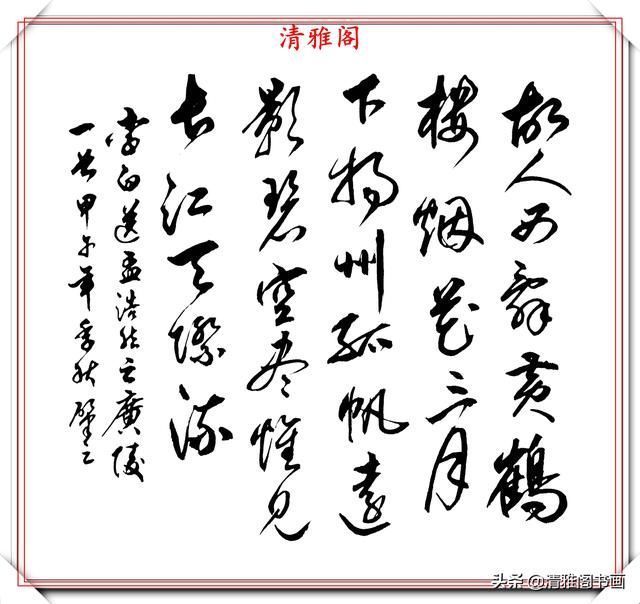 清雅阁
故人西辞黄鹤
楼烟花三月
下扬州孤帆远
影碧空尽惟见
长江天际流
李白送孟浩然之廣陵
一首甲午年季秋肇仁
头条@清雅阁书画